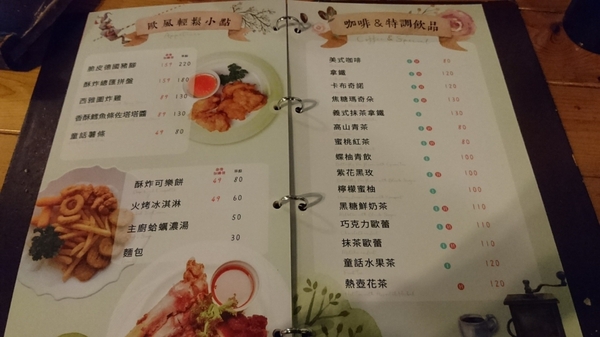 歐風輕鬆小點
脆皮德國豬腳 169 220
酥炸總匯拼盤 139 180
西雅圖炸雞 89 130
香酥鱈魚條佐塔塔醬 89 130
童話薯條 49 80
酥炸可樂餅 49 80
火烤冰淇淋 49 60
主廚蛤蠣濃湯 50
麵包 30
咖啡&特調飲品
美式咖啡 80
拿鐵 120
卡布奇諾 120
焦糖瑪奇朵 130
義式抹茶拿鐵 130
高山青茶 80
蜜桃紅茶 80
蝶柚青飲 100
紫花黑玫 100
檸檬蜜柚 100
黑糖鮮奶茶 110
巧克力歐蕾 110
抹茶歐蕾 110
童話水果茶 120
熱壺花茶 120